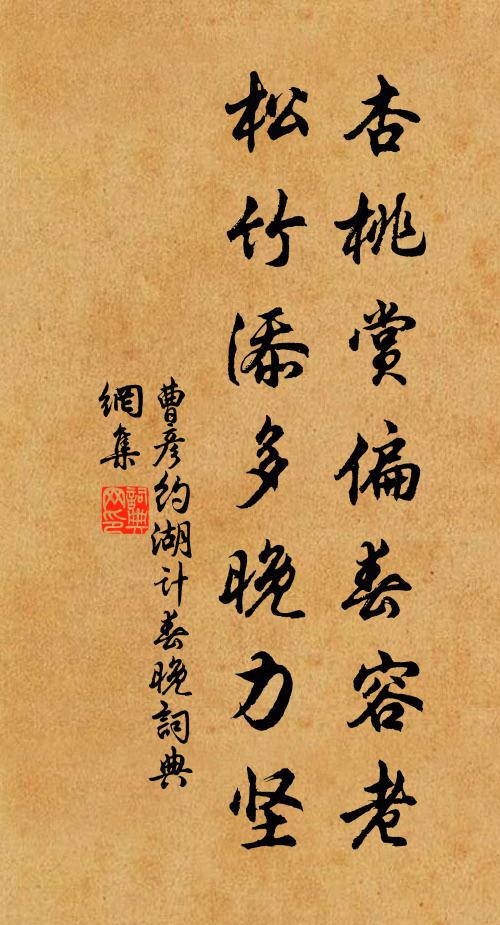 杏桃赏偏春容老
松竹添多晚力坚
曹彦约湖计春晚詞典
網集
詞典
网印